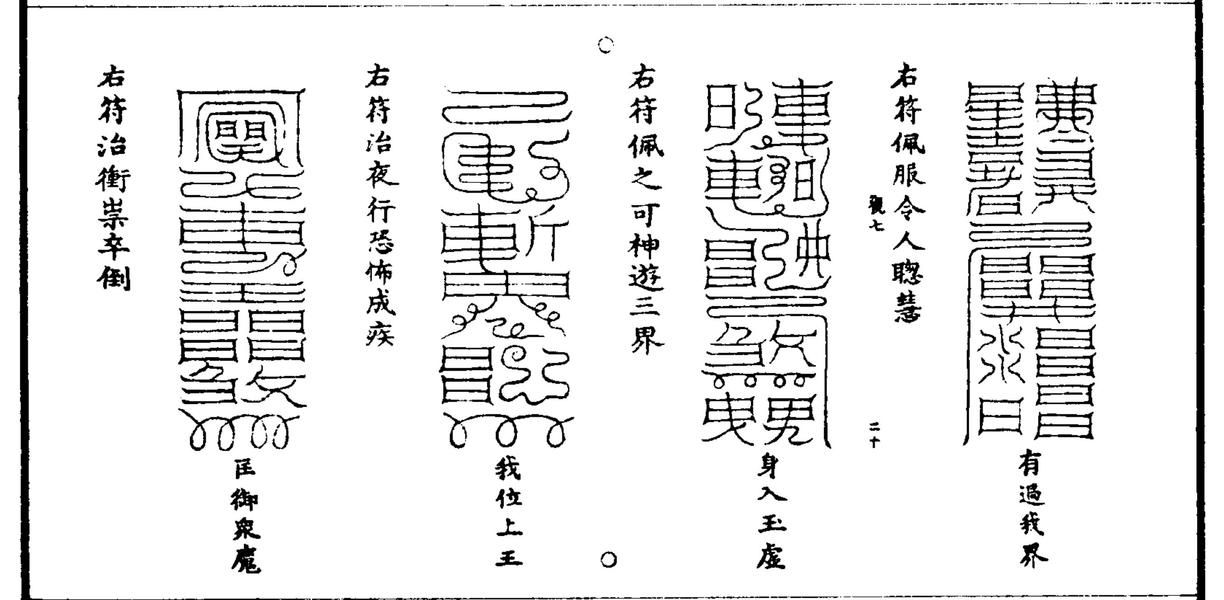 有過我界
右符佩服令人聰慧
二十
身入玉虛
右符佩之可神遊三界
我位上王
右符治夜行恐怖成疾
匡御衆魔
右符治衝祟卒倒